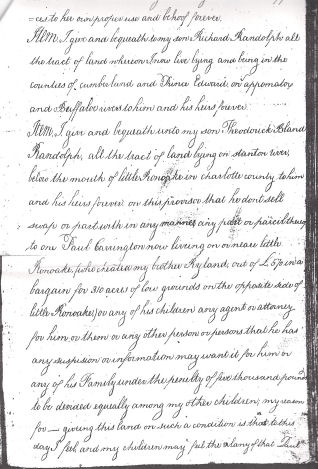 =ces to her own proper use and behoof forever.
Item, I give and bequeath to my son Richard Randolph, all
the tract of land whereon I now live lying and being in the
counties of cumberland and Prince Edward on appomatox
and Buffaloe rivers to him and his heirs forever.
Item, I give and bequeath unto my son Theodorick Bland
Randolph, all the tract of land lying on stanton river,
below the mouth of little Ronoake in charlotte county to him
and his heirs forever on this provisor that he dont sell
swap or part with in any manner any part or parcel thereof
to one Paul Carrington now liveing on or near little
Ronoake, (who cheated my brother Ryland, out of £570 in a
bargain for 310 acres of low grounds on the opposite side of
little Ronoake) or any of his children any agent or attorney
for him or them or any other person or persons that he has
any suspision or information may want it for him or
any of his Family under the penulty of five thousand pounds
to be devided equally among my other children, my reason
for giving this land on such a condition is that to this
day I feel and my children may feel the of that